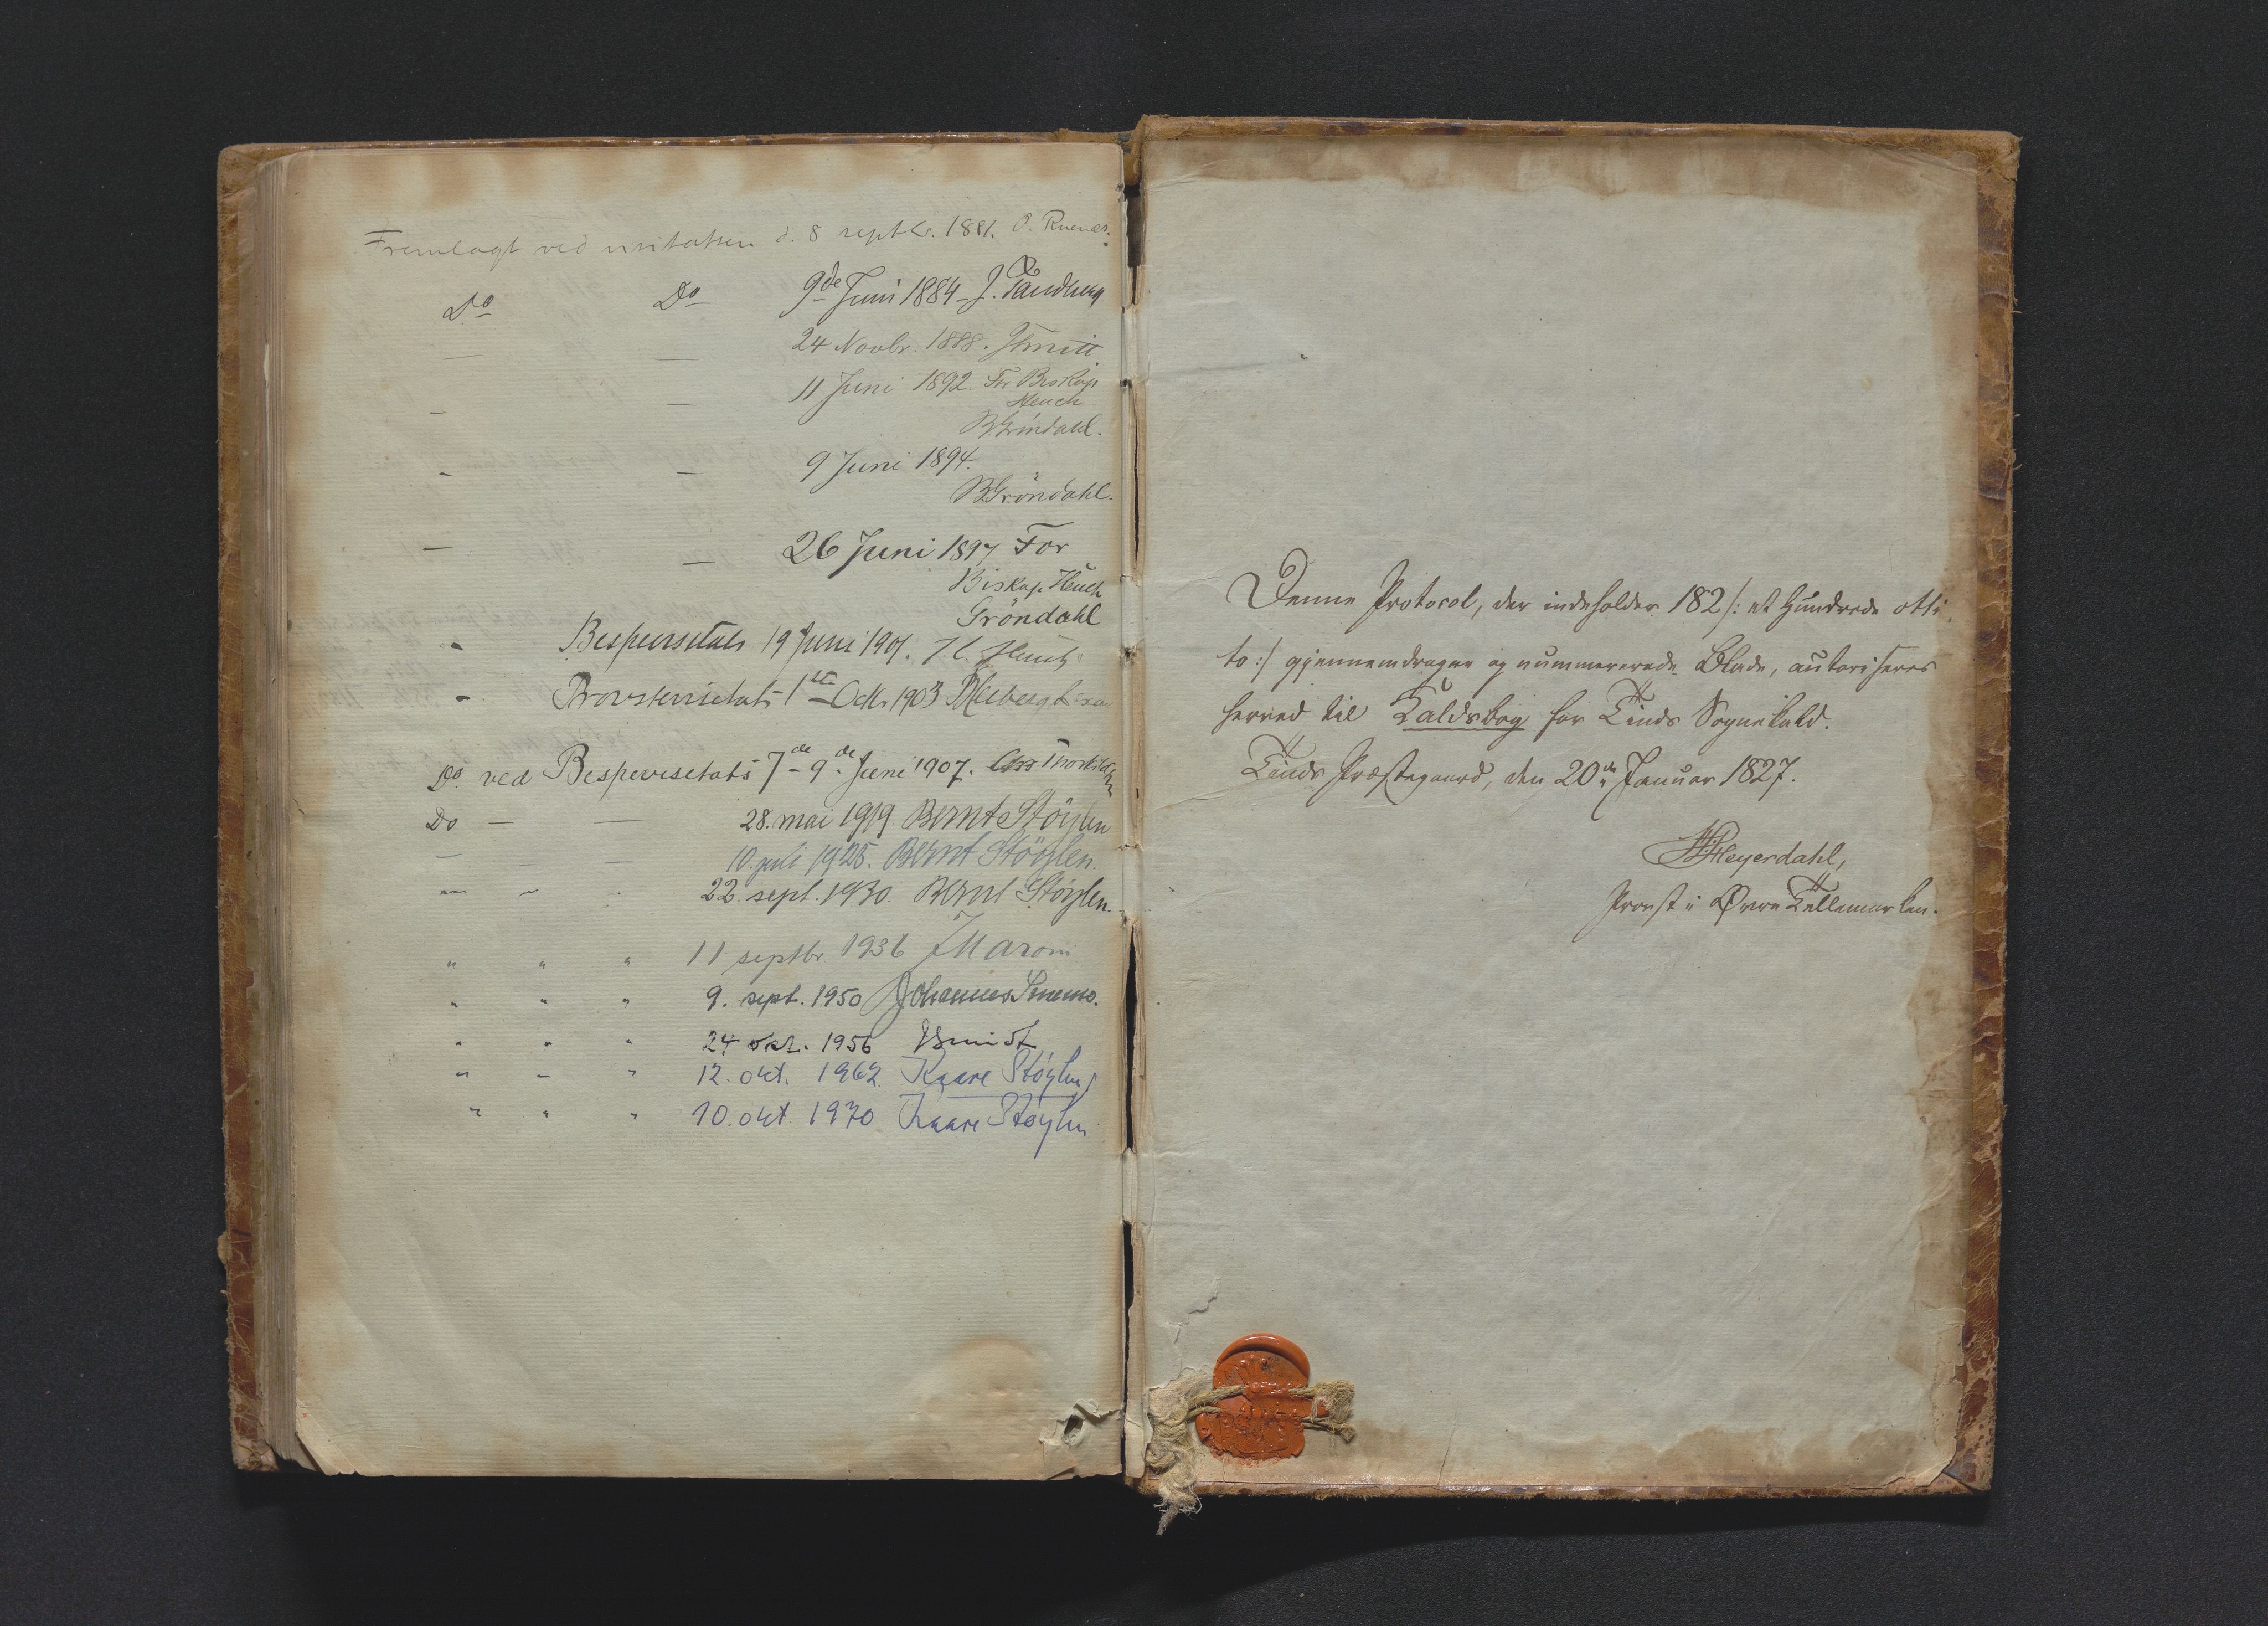 Fremlagt ved visitatsen d. 8 septbr. 1881.
Do Do 9de Juni 1884 - J.
— — 24 Novbr. 1888.
— — 11 Juni 1892. For Biskop
Heuch
B. Gröndahl.
- — 9 Juni 1894.
B. Gröndahl.
— — 26 Juni 1897 For
Biskop Heuch
Gröndahl
- Bispevisitats 19 Juni 1901. J. C. Heuch
- Provstevisitats 1ste Octbr 1903
Do. ved Bispevisitats 7de - 9de Juni 1907.
Do — — 28. mai 1919. Bernt Stöylen
— — — 10. juli 1925. Bernt Stöylen.
— - - 22. sept. 1930. Bernt Stöylen.
" " " 11 septbr. 1936 J Maroni
" " " 9. sept. 1950 Johannes Smemo.
" " " 24 okt. 1956 Smidt
" - " 12. okt. 1962 Kaare Støylen
" " " 10. okt 1970 Kaare Støylen
Denne Protocol, der indeholder 182 /: et Hundrede otti
to :/ gjennemdragne og nummererede Blade, autoriseres
herved til Kaldsbog for Tinds Sognekald.
Tinds Præstegaard, den 20de Januar 1827.
Heyerdahl,
Provst i Øvre Tellemarken.